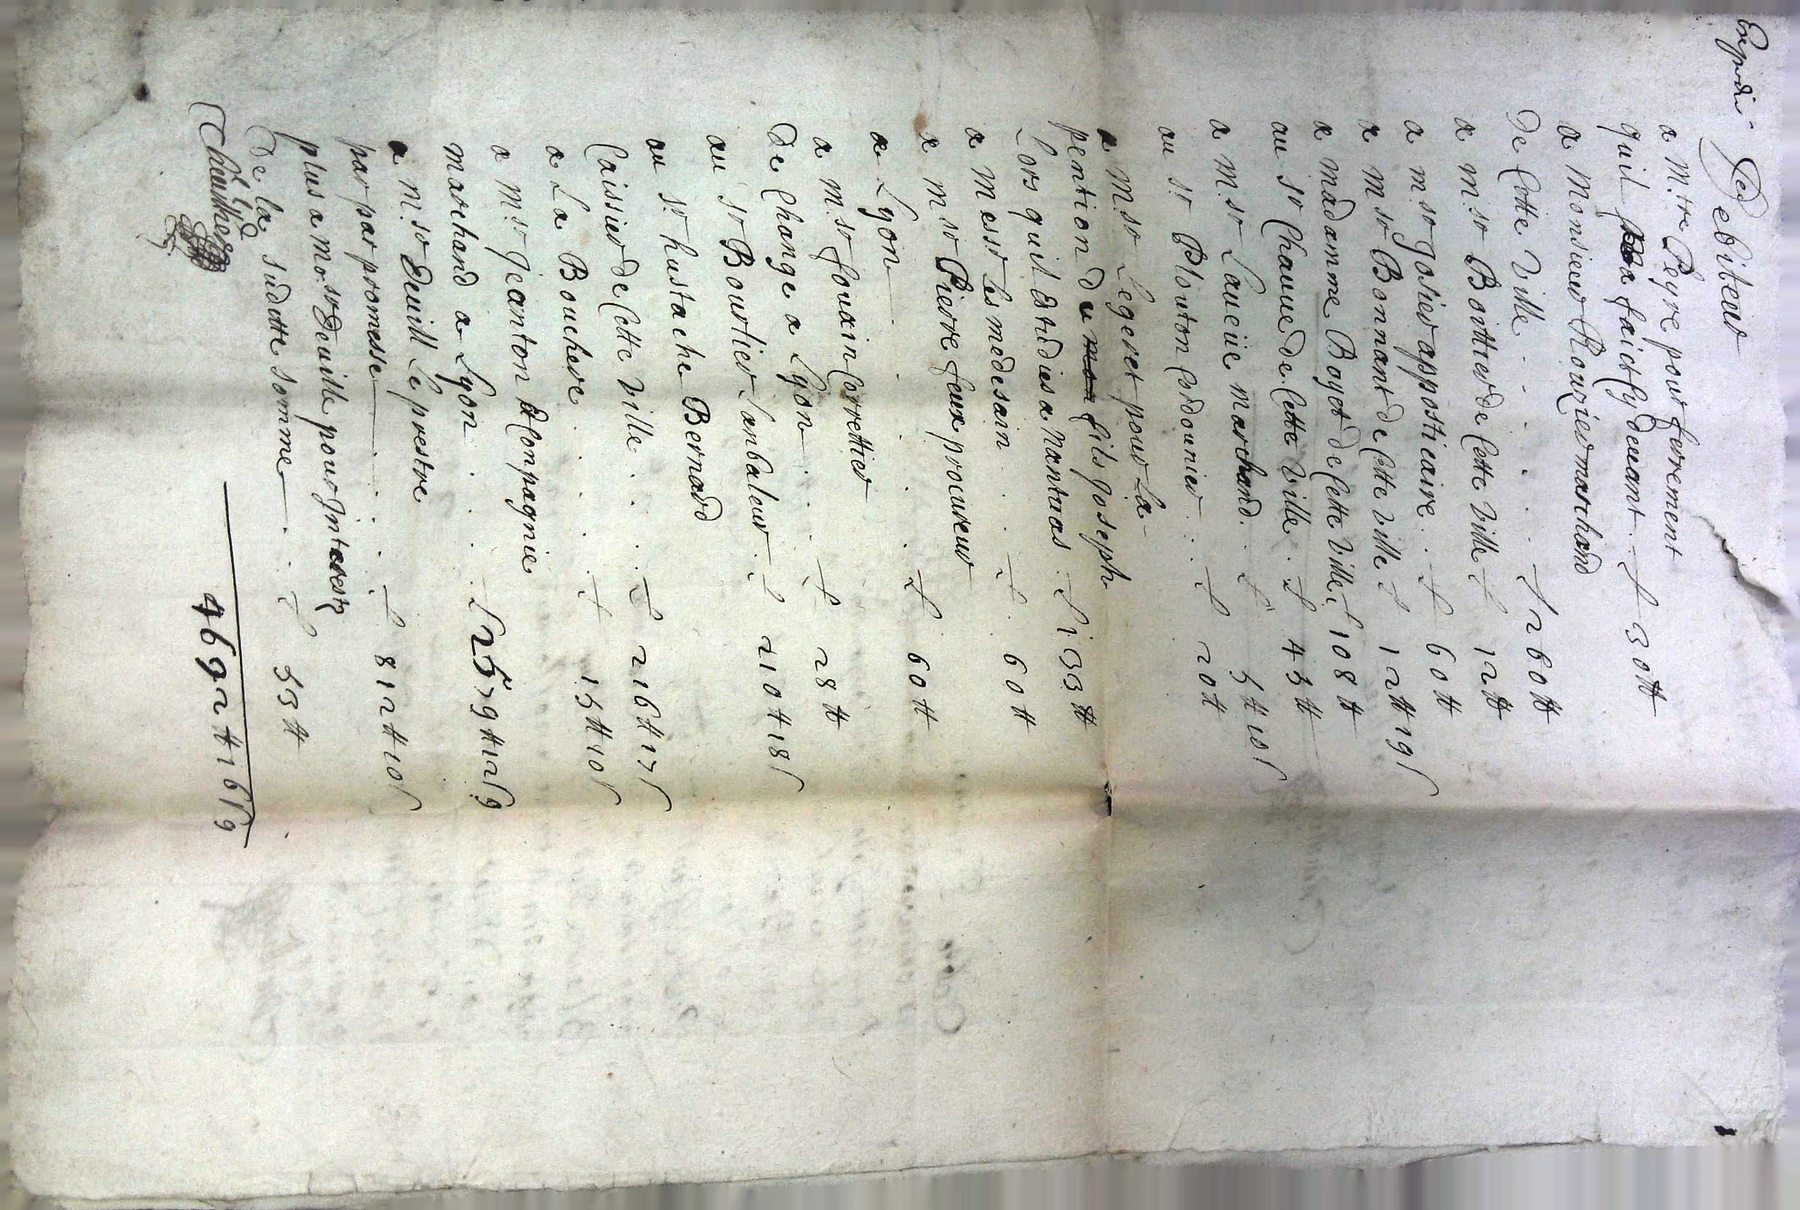 Debiteur
a M.tre Peyre pour ferrement
quil a faict cy devant . . £ 30 ₶
a Monsieur Rouzier marchand
de Cette ville . . . . . . £ 260 ₶
a m.sr Boittier de Cette ville £ 12 ₶
a m.sr Josier appoticaire . . £ 60 ₶
a m.sr Bonnant de Cette ville £ 12 ₶ 19 s
a madamme Boyet de Cette ville £ 108 ₶
au sr Chauve de Cette ville . £ 43 ₶
a M.sr Laveüe marchand . £ 5 ₶ 10 s
au sr Plouton Cordounier . . £ 20 ₶
a M.sr Legeret pour La
pention du mon fils Joseph
Lors quil Estudies a Nantuas . £ 133 ₶
a Messr Les medesain . . . £ 60 ₶
a m.sr Pierre procureur
a Lyon . . . . £ 60 ₶
a m.sr Correttier
de Change a Lyon . . . £ 28 ₶
au sr Bourlier . £ 210 ₶ 18 s
au sr hustache Bernard
Caissier de Cette ville . . . £ 216 ₶ 17 s
a La Bouchere . . . . £ 15 ₶ 10 s
a M.sr Jeanton & Compagnie
marchand a Lyon . . . . £ 2579 ₶ 12 s 9
a M.sr Deuille Le prestre
par par promesse . . . . £ 812 ₶ 10 s
plus a Mo.sr Deuille pour Interestz
De la sudette somme . . . £ 33 ₶
4692 ₶ 16 s 9